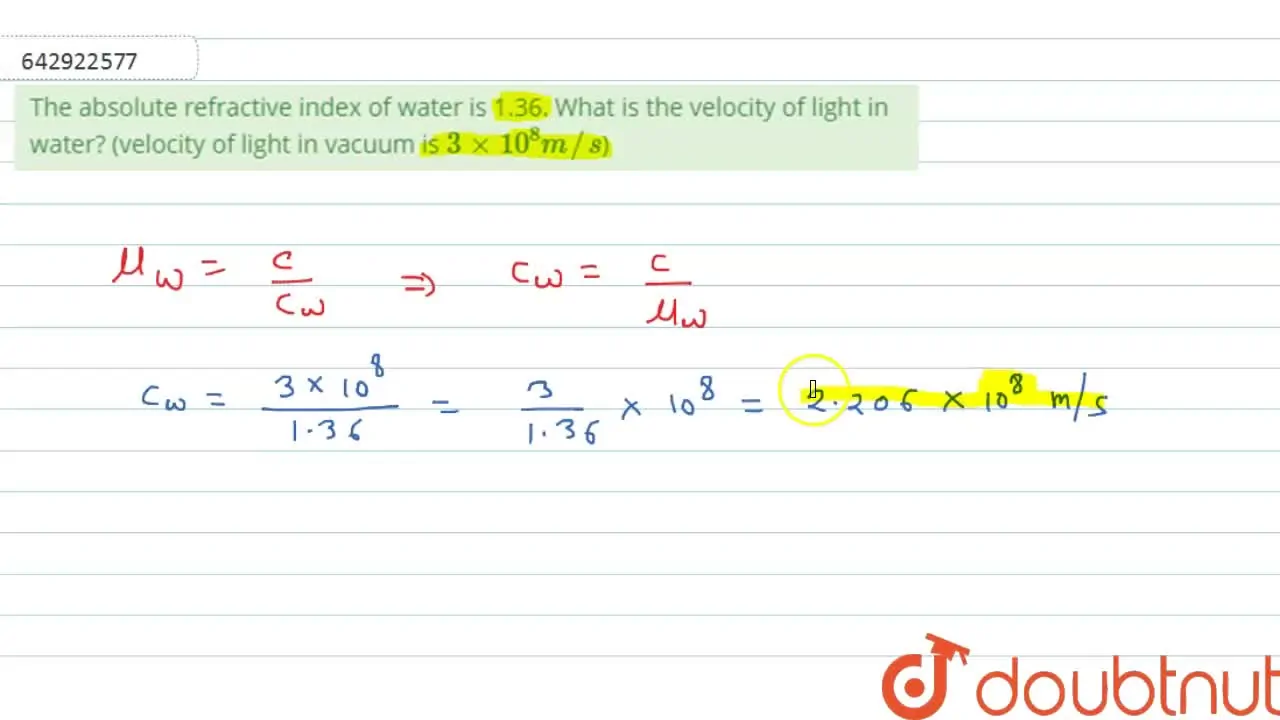 642922577
The absolute refractive index of water is 1.36. What is the velocity of light in
water? (velocity of light in vacuum is 3 × 10⁸m / s)
μw = c/cw ⇒ cw = c/μw
cw = 3 × 10⁸/1.36 = 3/1.36 × 10⁸ = 2.206 × 10⁸ m/s
doubtnut